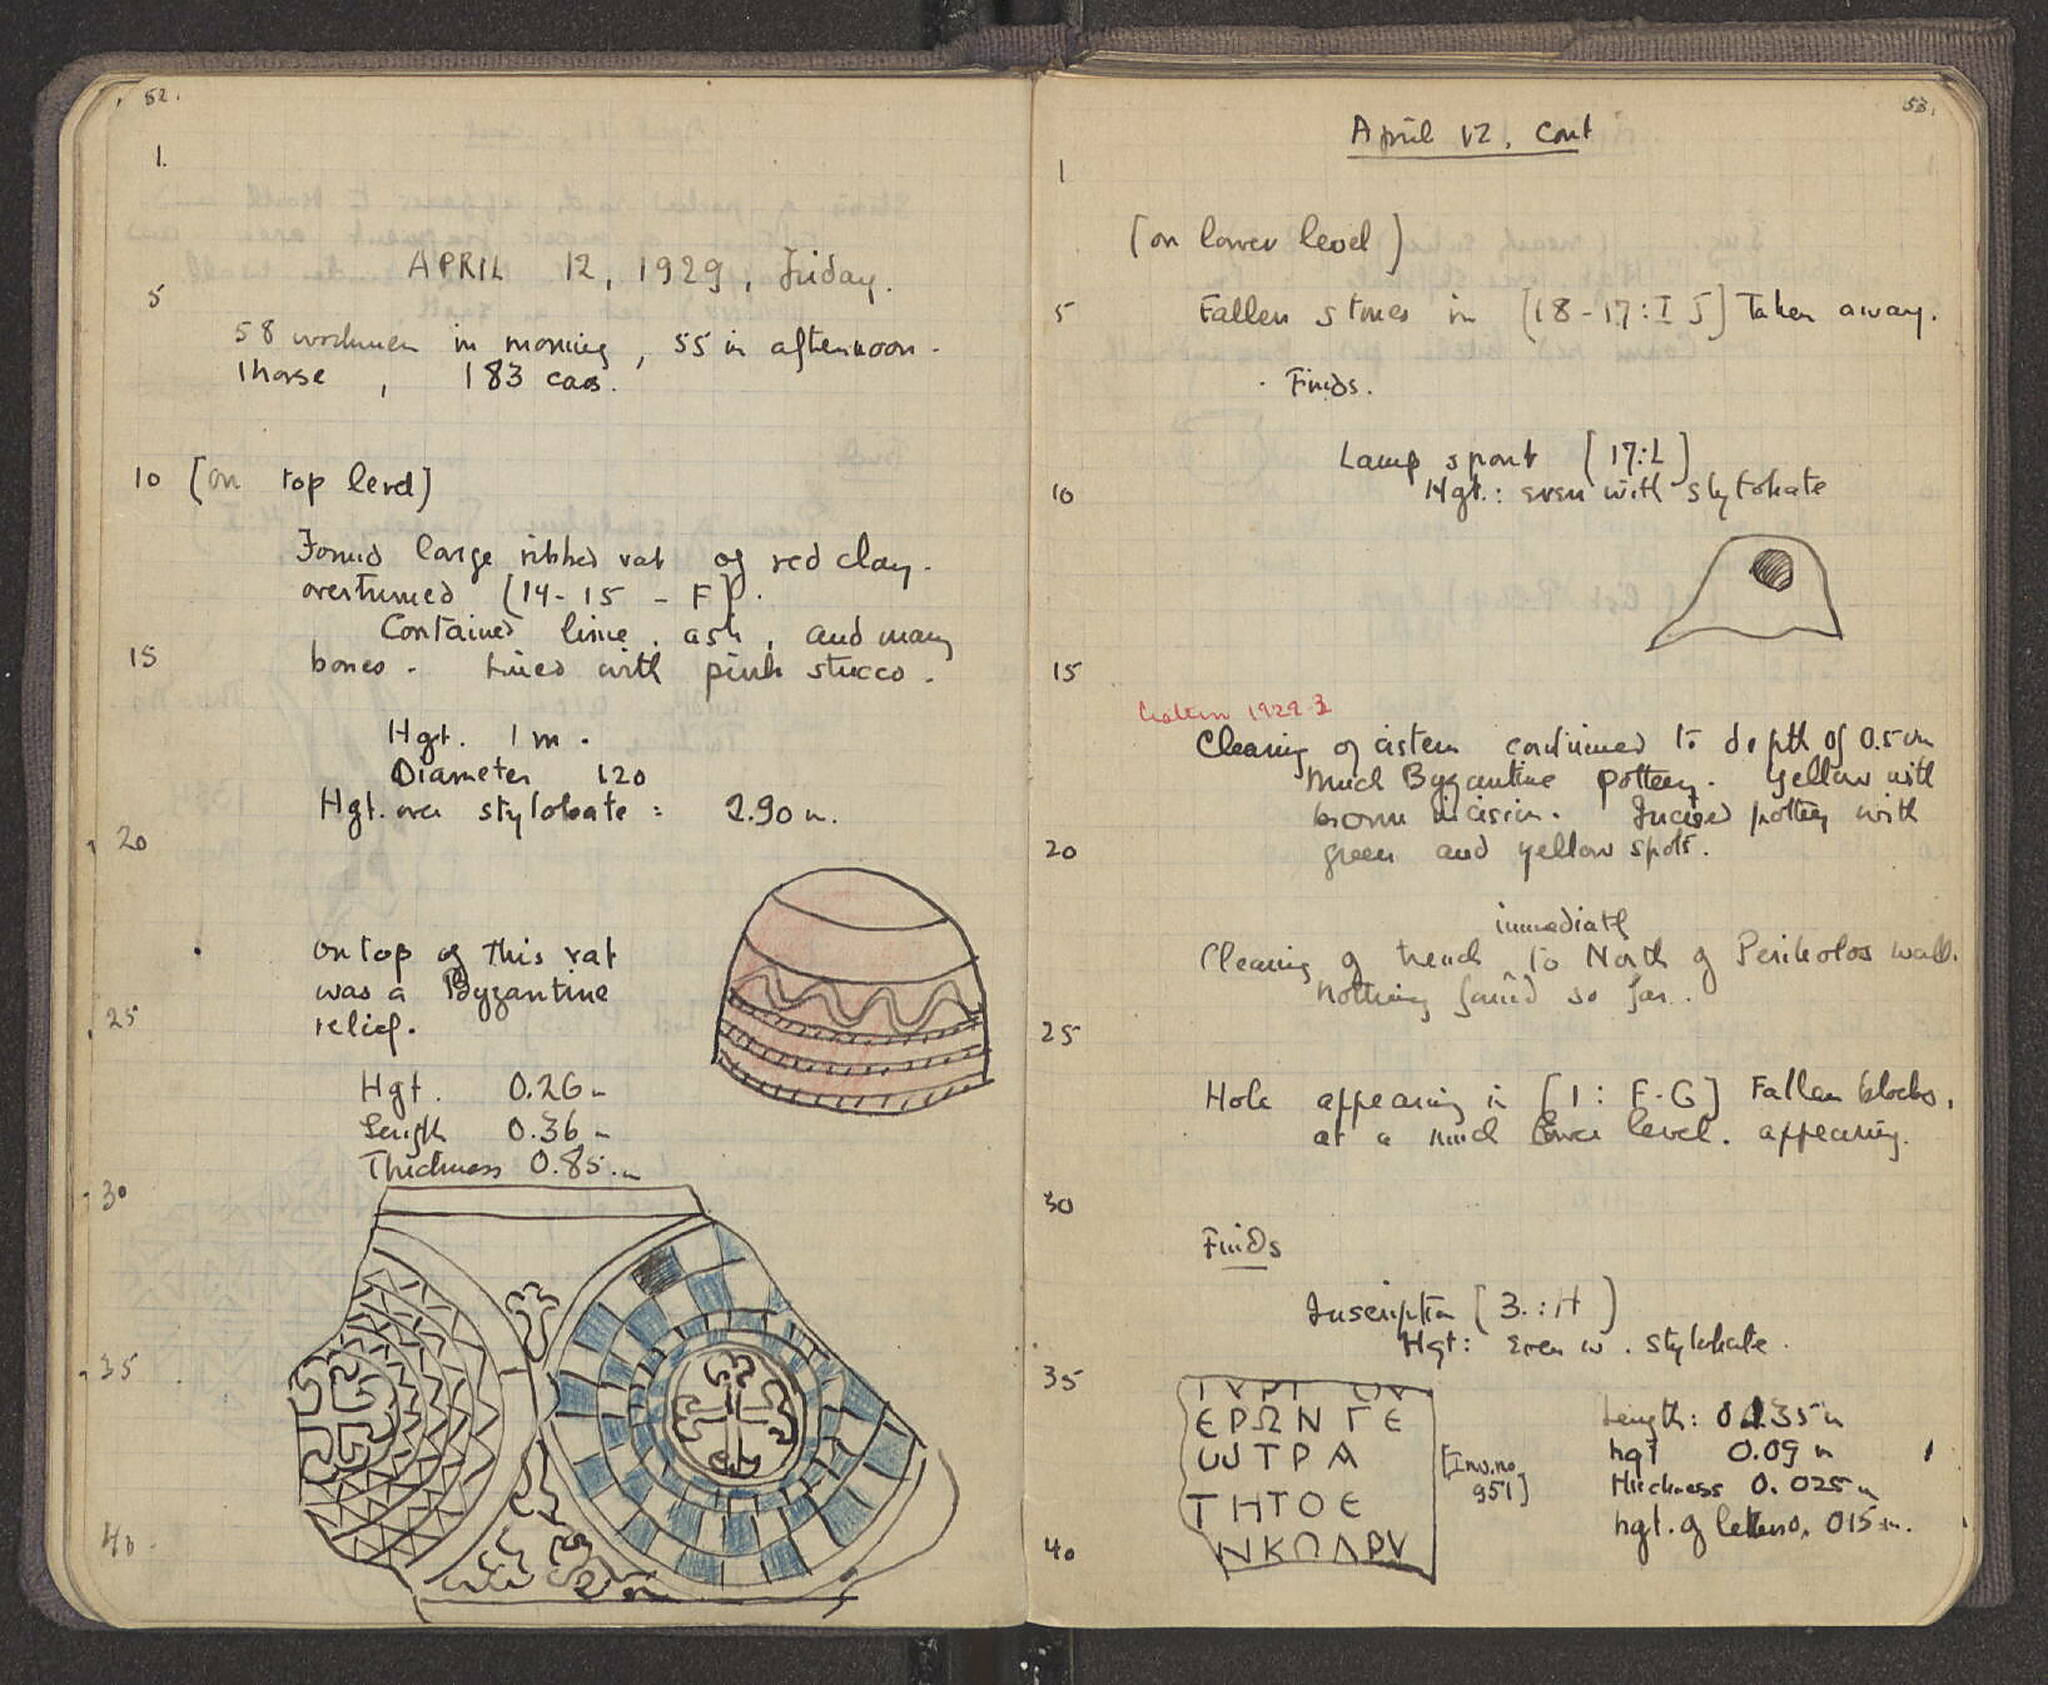 52.
1.
APRIL 12, 1929, Friday.
5
58 workmen in morning, 55 in afternoon.
1 horse, 183 cars.
10 [on top level]
Found large ribbed vat of red clay.
overturned [14-15 - F].
Contained lime, ash, and many
15 bones. Lined with pink stucco.
Hgt. 1 m.
Diameter 120
Hgt. over stylobate = 2.90 m.
20
on top of this vat
was a Byzantine
25 relief.
Hgt. 0.26 m
Length 0.36 m
Thickness 0.85 m
30
35
40
53.
April 12, Cont
1
(on lower level)
5 Fallen stones in [18-17: I J] Taken away.
Finds.
Lamp spout [17:L]
10 Hgt.: even with stylobate
15
1929-
Clearing of cistern continued to depth of 0.5 m
Much Byzantine pottery. Yellow with
brown incision. Incised pottery with
20 green and yellow spots.
immediatly
Clearing of trench to North of Peribolos wall.
Nothing found so far.
25
Hole appearing in [1: F-G] Fallen blocks,
at a much lower level. appearing.
30
Finds
Inscription [3.:H]
Hgt: Even w. stylobate.
35
ΕΡΩΝΓΕ
ωΤΡΑ
ΤΗΤΟΕ
40
[Inv. no.
951]
Length: 0.135 m
hgt 0.09 m
thickness 0.025 m
hgt. of letters 0.015 m.